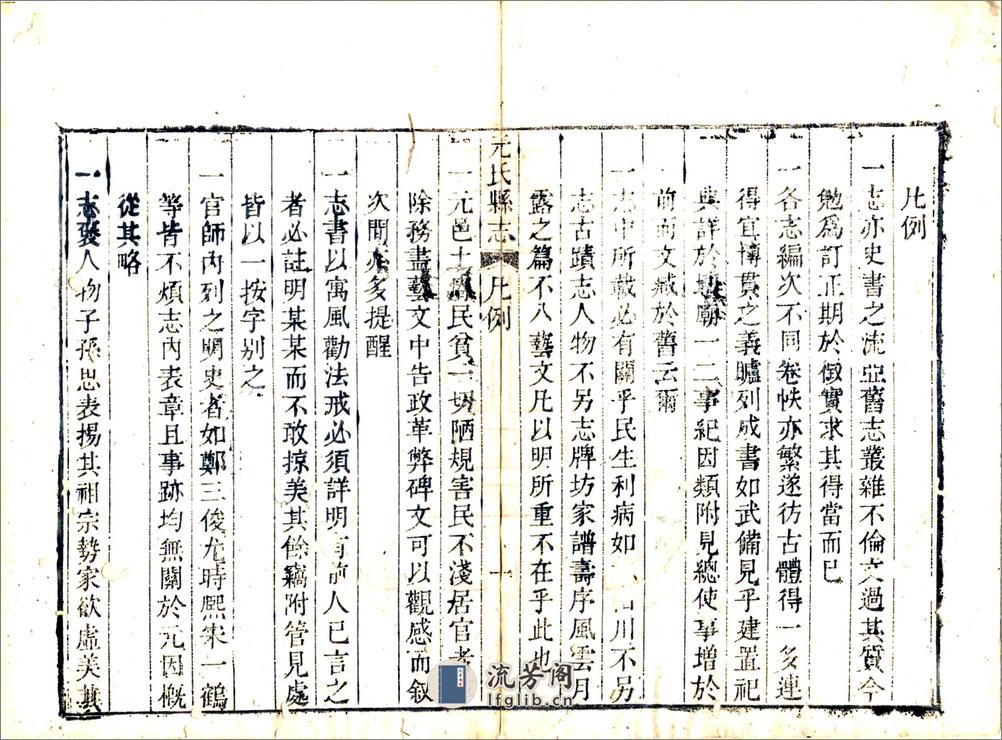 凡例
一志亦史書之流亞舊志叢雜不倫文過其實今
勉為訂正期於徵實求其得當而已
一各志編次不同卷帙亦繁遂彷古體得一多連
得宜博貫之義臚列成書如武備見乎建置祀
典詳於壇廟一二事紀因類附見總使事增於
前而文減於舊云爾
一志中所載必有關乎民生利病如 川不另
志古蹟志人物不另志牌坊家譜壽序風雲月
露之篇不入藝文凡以明所重不在乎此也
元氏縣志 凡例 一
一元邑土 民貧一切陋規害民不淺居官者
除務盡藝文中告政革弊碑文可以觀感而敘
次間亦多提醒
一志書以寓風勸法戒必須詳明有前人已言之
者必註明某某而不敢掠美其餘竊附管見處
皆以一按字別之
一官師內列之明史者如鄭三俊尤時熙宋一鶴
等皆不煩志內表章且事跡均無關於元因概
從其略
一志娶人物子孫思表揚其祖宗勢家欲虛美其
流芳閣
lfglib.cn